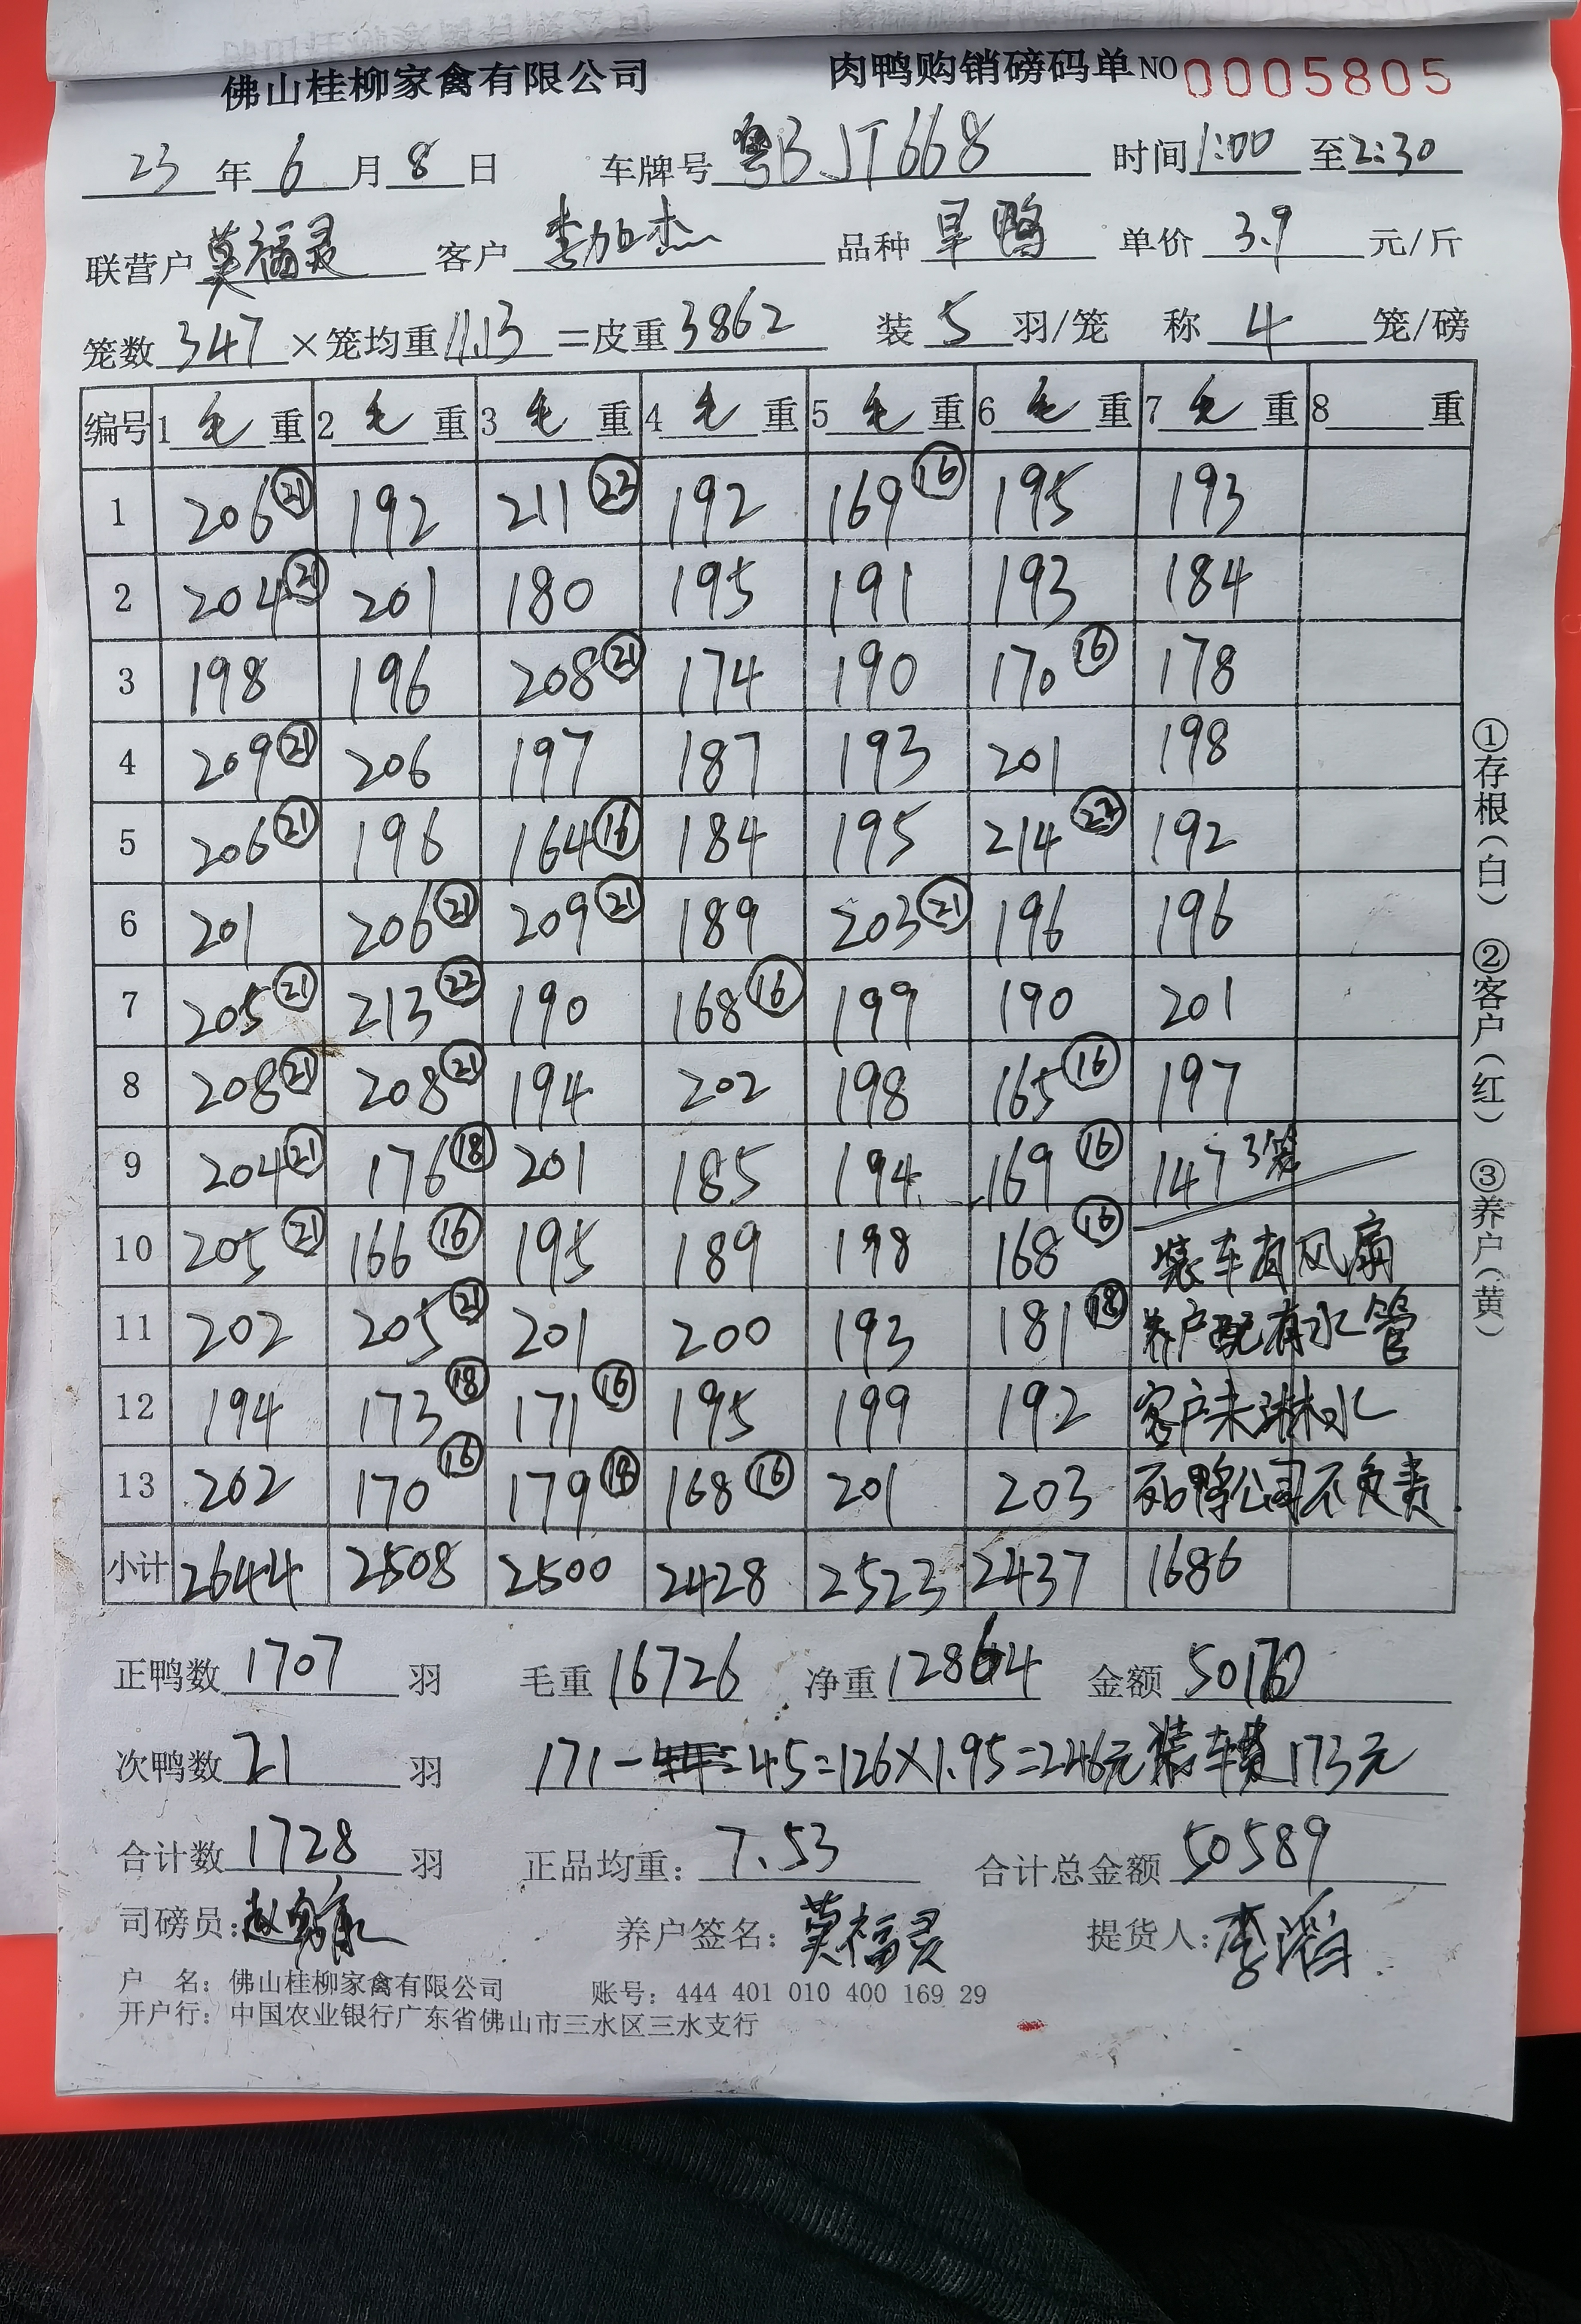 佛山桂柳家禽有限公司 肉鸭购销磅码单 NO 0005805
23 年 6 月 8 日 车牌号 粤BJT668 时间 1:00 至 2:30
联营户 莫福灵 客户 李加杰 品种 旱鸭 单价 3.9 元/斤
笼数 347 ×笼均重 11.13 =皮重 3862 装 5 羽/笼 称 4 笼/磅
编号 1 毛 重 2 毛 重 3 毛 重 4 毛 重 5 毛 重 6 毛 重 7 毛 重 8 重
1 206 ㉑ 192 211 ㉓ 192 169 ⑯ 195 193
2 204 ㉑ 201 180 195 191 193 184
3 198 196 208 ㉑ 174 190 170 ⑯ 178
4 209 ㉑ 206 197 187 193 201 198
5 206 ㉑ 196 164 ⑯ 184 195 214 ㉒ 192
6 201 206 ㉑ 209 ㉑ 189 203 ㉑ 196 196
7 205 ㉑ 213 ㉒ 190 168 ⑯ 199 190 201
8 208 ㉑ 208 ㉑ 194 202 198 165 ⑯ 197
9 204 ㉑ 176 ⑱ 201 185 194 169 ⑯ 147 3笼
10 205 ㉑ 166 ⑯ 195 189 198 168 ⑯ 装车有风扇
11 202 205 ㉑ 201 200 193 181 ⑱ 养户配有水管
12 194 173 ⑱ 171 ⑯ 195 199 192 客户未淋水
13 202 170 ⑯ 179 ⑱ 168 ⑯ 201 203 死鸭公司不负责.
小计 2644 2508 2500 2428 2523 2437 1686
正鸭数 1707 羽 毛重 16726 净重 12864 金额 50170
次鸭数 21 羽 171-45=126×1.95=246元 装车费173元
合计数 1728 羽 正品均重: 7.53 合计总金额 50589
司磅员: 养户签名: 莫福灵 提货人: 李滔
户 名: 佛山桂柳家禽有限公司 账号: 444 401 010 400 169 29
开户行: 中国农业银行广东省佛山市三水区三水支行
①存根(白) ②客户(红) ③养户(黄)